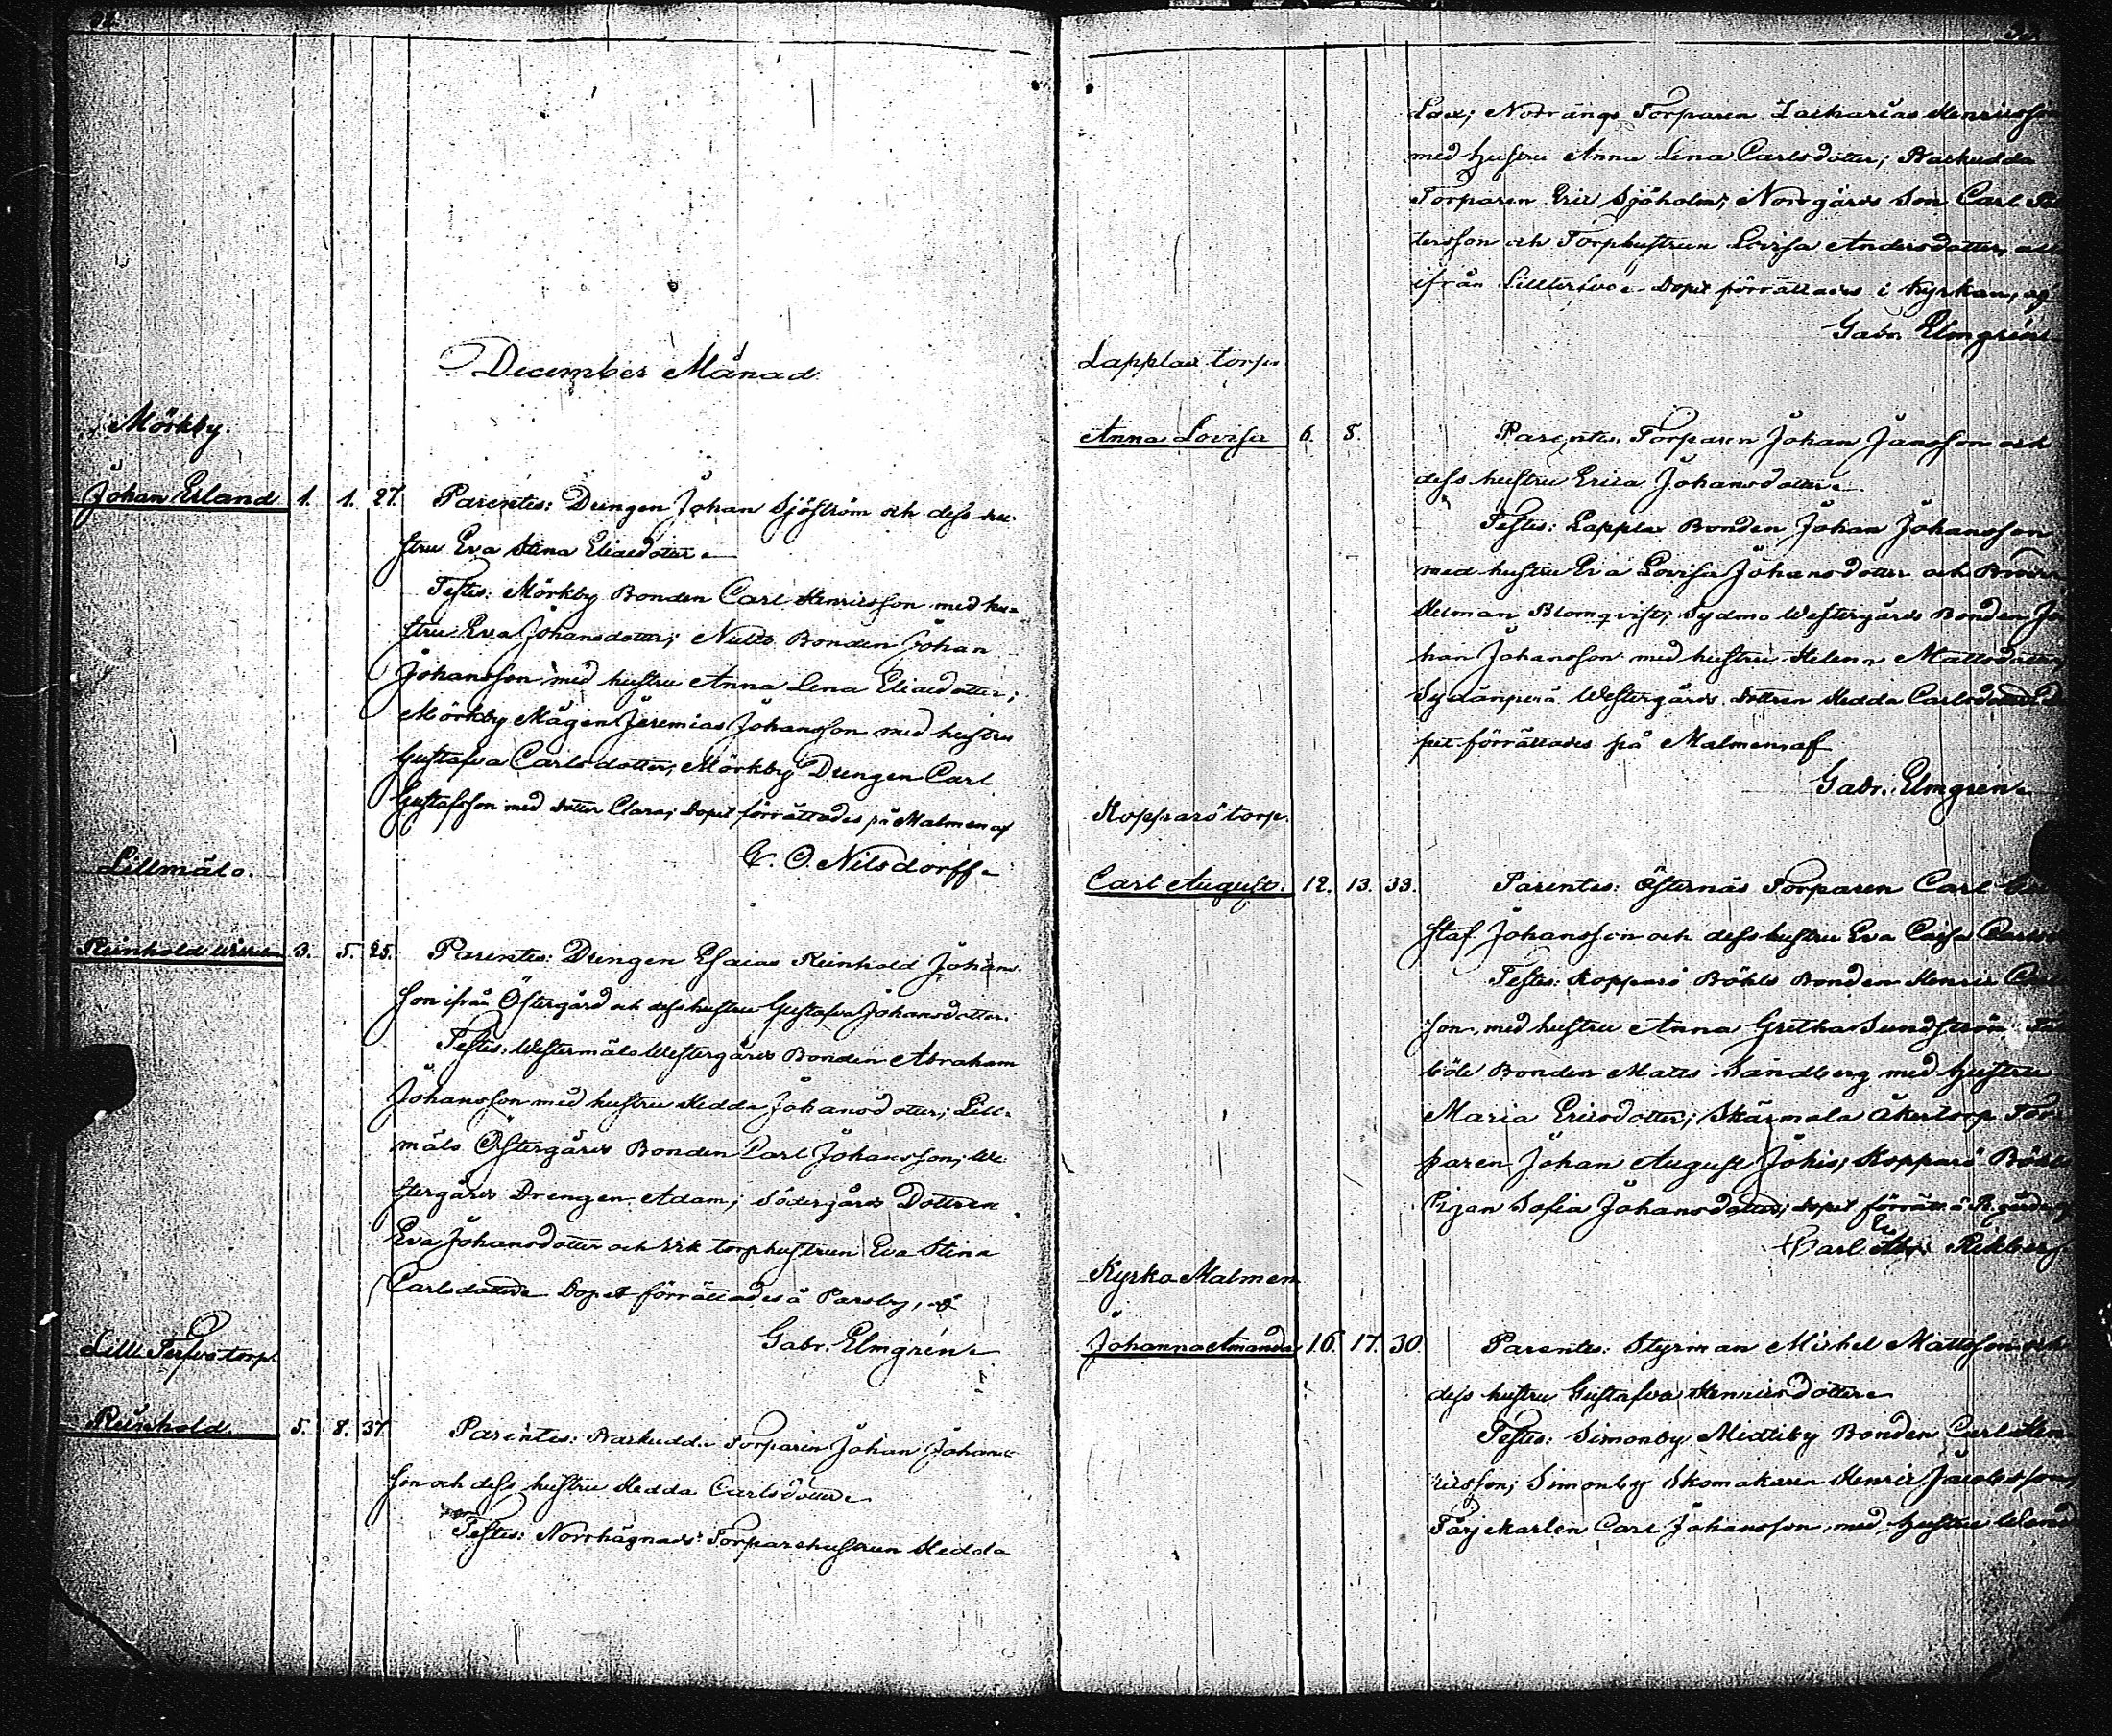 December Månad
Mörkby.
Johan Erland 1. 1. 27. Parentes: Drengen Johan Sjöström och dess hu-
stru Eva Stina Eliaedotter
Testes: Mörkby Bonden Carl Henricsson med hu-
stru Eva Johansdotter; Nulto Bonden Johan
Johansson med hustru Anna Lena Eliaedotter;
Mörkby Mågen Jeremias Johansson med hustru
Gustafva Carlsdotter; Mörkby Drengen Carl
Gustafsson med dotter Clara; Dopet förrättades på Malmen af
C. O. Nilsdorff
Lillmälo.
Reinhold Wilhelm 3. 5. 25. Parentes: Drengen Esaias Reinhold Johans-
son ifrån Östergård och dess hustru Gustafva Johansdotter.
Testes: Westermälo Westergårds Bonden Abraham
Johansson med hustru Hedda Johansdotter; Lill-
mälo Östergårds Bonden Carl Johansson; We-
stergårds Drengen Adam; Södergårds Dottren
Eva Johansdotter och torphustrun Eva Stina
Carlsdotter Dopet förrättades å Parsby, af
Gabr. Elmgrén
Lill Tervo torp.
Reinhold. 5. 8. 37. Parentes: Harkudda Torparen Johan Johans-
son och dess hustru Hedda Carlsdotter
Testes: Norrhagnäs Torparehustrun Hedda
Lax; Norrängs Torparen Zacharias Henricsson
med hustru Anna Lena Carlsdotter; Harkudda
Torparen Eric Sjöholm; Norrgårds Son Carl Pet-
tersson och Torphustrun Lovisa Andersdotter, alla
ifrån Lilltervo Dopet förrättades i Kyrkan, af
Gabr. Elmgrén
Lapplax torp.
Anna Lovisa 6. 8. Parentes: Torparen Johan Jansson och
dess hustru Erica Johansdotter
Testes: Lapplax Bonden Johan Johansson
med hustru Eva Lovisa Johansdotter och
Herman Blomqvist; Sydmo Westergårds Bonden Jo-
han Johansson med hustru Helena Mattsdotter;
Sydänperä Westergårds Dottren Hedda Carlsdotter Do-
pet förrättades på Malmen af
Gabr. Elmgrén
Kopparö torp.
Carl August. 12. 13. 33. Parentes: Östernäs Torparen Carl Gu-
staf Johansson och dess hustru Eva Caisa
Testes: Kopparö Böhle Bonden Henric
son, med hustru Anna Gretha Sundström
böle Bonden Matts Sandberg med hustru
Maria Ericsdotter; Skärmola Åkertorp Tor-
paren Johan August Johis; Kopparö Böhle
Pigan Sofia Johansdotter; Dopet förrätt. å P.gården af
Carl Er. Rekberg
Kyrko Malmen
Johanna Amanda 16. 17. 30. Parentes: Styrman Michel Mattsson och
dess hustru Gustafva Henricsdotter
Testes: Simonby Midtiby Bonden Carl Hen-
ricsson; Simonby Skomakaren Henric Jacobsson,
Färjekarlen Carl Johansson, med hustru